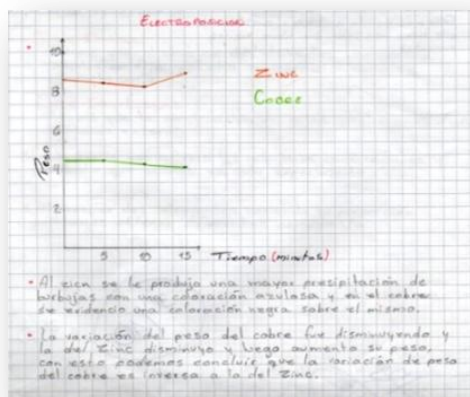 ELECTROPOSICION
10
8
6
4
2
Peso
Zinc
Cobre
5 10 15
Tiempo (minutos)
• Al zicn se le produjo una mayor presipitación de
burbujas con una coloración azulosa y en el cobre
se evidencio una coloración negra sobre el mismo.
• La variación del peso del cobre fue disminuyendo y
la del Zinc disminuyo y luego aumenta su peso,
con esto podemos concluir que la variación de peso
del cobre es inversa a la del Zinc.